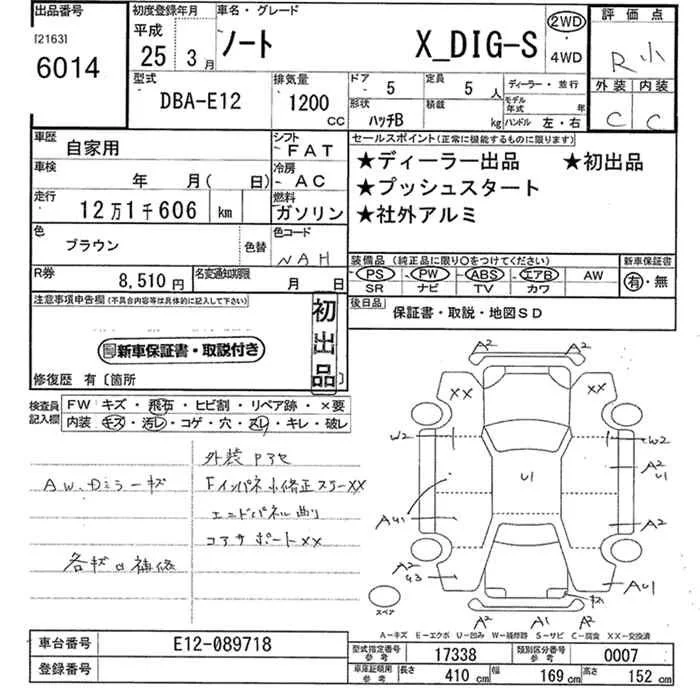 出品番号
[2163]
6014
初度登録年月
平成
25 3月
車名・グレード
ノート X_DIG-S
2WD
・
4WD
評価点
R 小
外装 内装
C C
型式
DBA-E12
排気量
1200
CC
ドア
5
定員
5 人
ディーラー・並行
形状
ハッチB
積載
kg
モデル年式 年
ハンドル 左・右
車歴
自家用
シフト
FAT
車検
年 月( 日)
冷房
AC
走行
12万1千606 km
燃料
ガソリン
色
ブラウン
色替
色コード
NAH
R券
8,510円
名変通知期限
月 日
セールスポイント(正常に機能するものに限ります)
★ディーラー出品 ★初出品
★プッシュスタート
★社外アルミ
装備品(純正品に限り○をつけてください)
PS PW ABS エアB AW
SR ナビ TV カワ
新車保証書
有・無
後日品
保証書・取説・地図SD
注意事項申告欄(不具合内容等は具体的に記入して下さい)
新車保証書・取説付き
初出品
修復歴 有〔箇所
検査員記入欄
FW キズ・飛石・ヒビ割・リペア跡・×要
内装 キズ・汚レ・コゲ・穴・スレ・キレ・破レ
外装Pアセ
AW、Dミラーキズ
Fインパネ小修正スリーXX
エンドパネル曲り
コアサポートXX
各キズ凹補修
A2 A2
XX XX
W2 W2
A2
U1
U1
AU1
A2
A2
U3
AU1
キズ
スペア
A2 A1 A2
A-キズ E-エクボ U-凹み W-補修跡 S-サビ C-腐食 XX-交換済
車台番号
E12-089718
登録番号
型式指定番号
参考
17338
類別区分番号
参考
0007
車庫証明用
参考
長さ
410 cm
幅
169 cm
高さ
152 cm